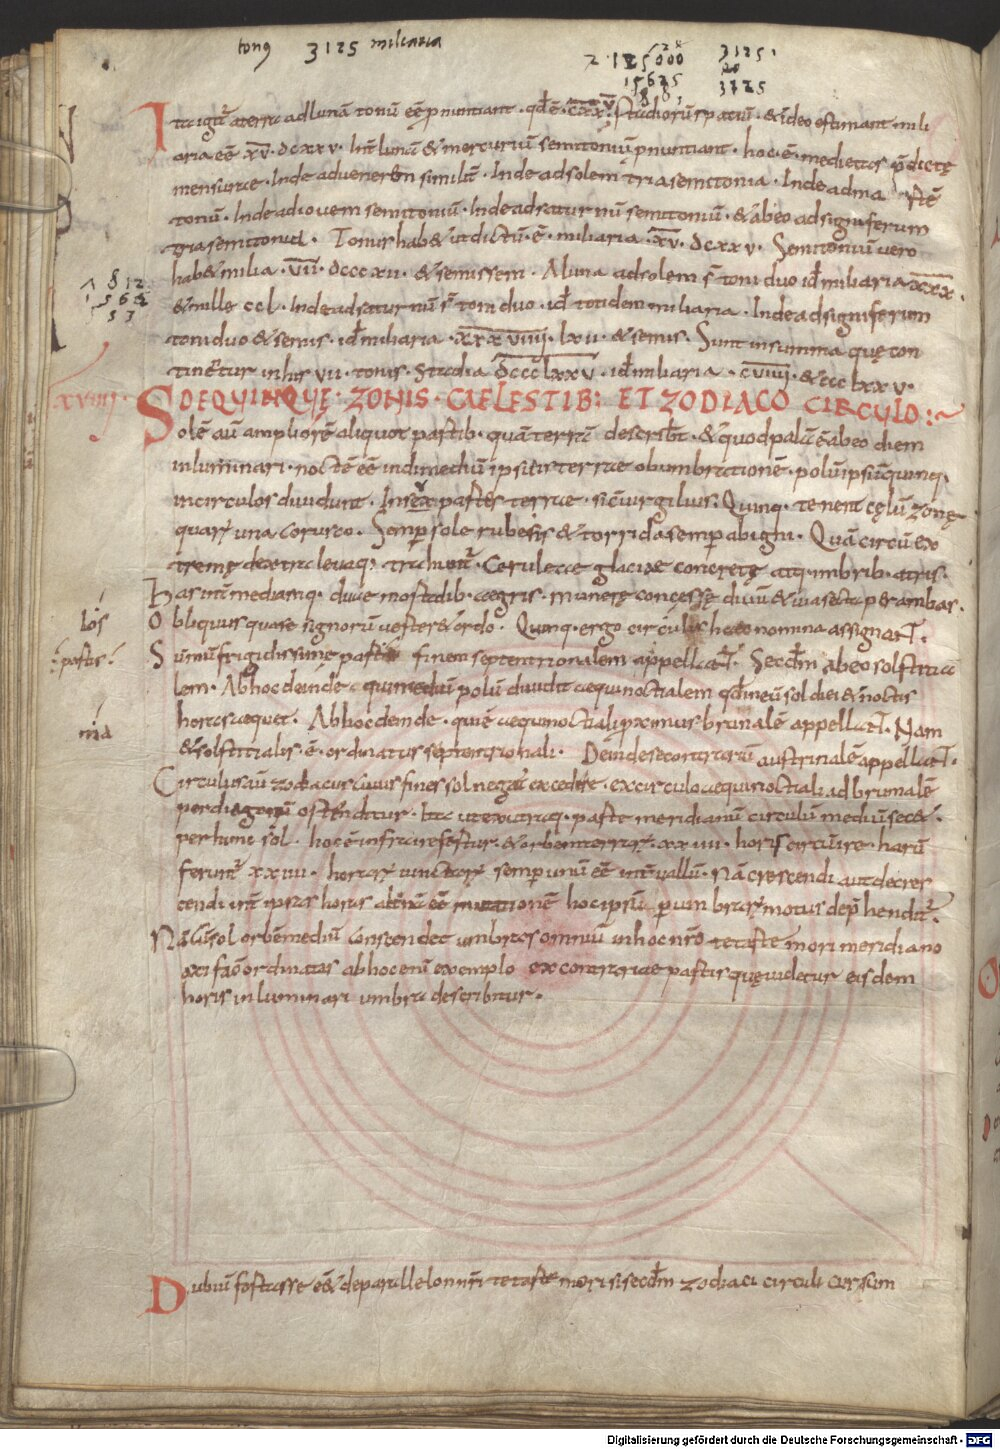 tonus 3125 miliaria
3125
20
3725
15625
Itaigit̃ a terra ad lunā tonū eē ꝓnuntiant · qđ ē · c̅x̅x̅v̅ · stadiorū spatiū · & ideo estimant · mili
aria eē · x̅v̅ · dcxxv · Int̃ lunā & mercuriū semitoniū ꝓnuntiant · hoc · ē · medietas p̄dictę
mensurae · Inde ad venerē similit̃ · Inde ad solem tria semitonia · Inde ad ma rtē
tonū · Inde ad iovem semitoniū · Inde ad saturnū semitoniū · & ab eo ad signiferum
tria semitonia · Tonus hab& ut dictū · ē · miliaria · x̅v̅ · dcxxv · Semitoniū vero
hab& milia · v̅i̅i̅ · dcccxii · & semissem · A luna ad solem s̄ toni duo id̄ miliaria x̅x̅x̅ ·
& mille ccl · Inde ad saturnū s̄ toni duo · id̄ totidem miliaria · Inde ad signiferum
toni duo & semis · id̄ miliaria · x̅x̅x̅v̅i̅i̅i̅i̅ · lxii · & semis · Sunt in summa quę con
tinētur in his vii · tonis · stadia d̅c̅c̅c̅l̅x̅x̅v̅ · id̄ miliaria · c̅v̅i̅i̅i̅i̅ · & ccclxxv ·
xviiii · DE QUINQUĘ · ZONIS · CAELESTIB: ET ZODIACO CIRCULO :~
Solē aū ampliorē aliquot partib · quā terrā describt̄ · & quod palā ē ab eo diem
inluminari · noctē eē indimediū ipsius terrae obumbrationē · polū ipsū quinq ·
in circulos dividunt · In sex partes terrae · sic ē virgilius · Quinq · tenent cęlū zonę
quarꝝ una corusco · Semp̄ sole rubens & torrida semp̄ ab igni · Quā circū ex
tremę dextra levaq · trahunt̃ · Ceruleae glaciae concretę atq · imbrib · atris ·
Has int̃ mediamq · duae mortalib · aegris · munere concessę divū & via secta p̄ ambas ·
Obliquus quase signorū verter& ordo · Quinq · ergo circulis haec nomina assignart̃ ·
Sūmū frigidissimę partis finem septentrionalem appellart̃ · Secdm̄ ab eo solstitia
lem · Ab hoc deinde qui mediū polū dividit aequinoctialem qđ in eū sol diei & noctis
horas aequet · Ab hoc deinde · qui ē aequinoctiali ꝓximus brumalē appellart̃ · Nam
& solstitialis · ē · ordinatus septentrionali · Deinde se contrariū austrinalē appellart̃ ·
Circulus aū zodiacus cuius fines sol negat excedere · ex circulo aequinoctiali ad brumalē
per diagonū ostenditur · Itac ut ex utraq · parte meridianū circulū mediū secet ·
per hunc sol · hoc ē infra refertur · & orbem terrarꝝ · xxiiii · horis circūire · harū
ferunt̃ xxiiii · horarꝝ cunctarꝝ semp̄ unū eē int̃vallū · Nā crescendi aut decres
cendi int̃ ipsas horas altr̄nā eē mutationē hoc ipsū ꝑ umbrarꝝ motus dep̄hendit̃ ·
Nā cū sol orbē mediū conscendet umbras omniū in hoc nr̄o te rarte mori meridiano
axi facit ordinatas ab hoc enī exemplo ex contrariae partis quę videtur eisdem
horis inluminari umbra describitur ·
Dubiū fortasse ē & de parallelo nm̄ri te rarte mori si secdm̄ zodiaci circuli cursum
los
: partis :
nia
1 812
1 562
5 3
Digitalisierung gefördert durch die Deutsche Forschungsgemeinschaft - DFG